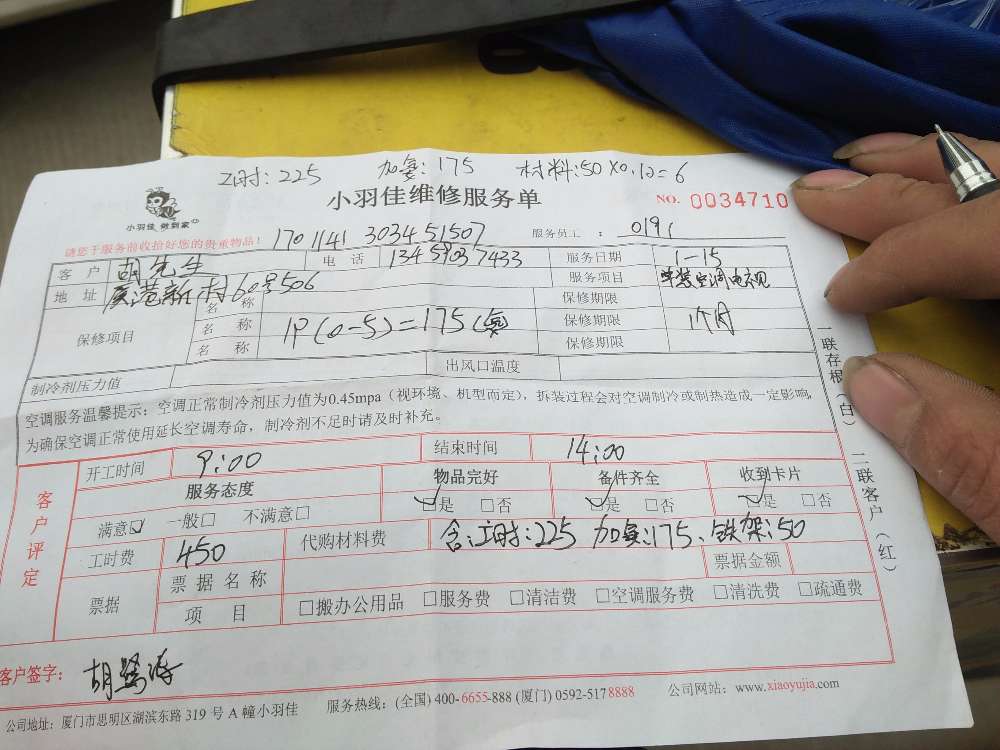 工时:225 加氨:175 材料:50×0.12=6
小羽佳维修服务单
小羽佳 做到家
NO. 0034710
请您于服务前收拾好您的贵重物品! 1701141 303451507 服务员工: 0191
客户 胡先生 电话 13459037433 服务日期 1-15
地址 厦港新村60号506 服务项目 空调电视
保修项目 名称 保修期限
名称 1P(0-5)=175(氨) 保修期限 1个月
名称 保修期限
制冷剂压力值 出风口温度
空调服务温馨提示:空调正常制冷剂压力值为0.45mpa(视环境、机型而定),拆装过程会对空调制冷或制热造成一定影响,
为确保空调正常使用延长空调寿命,制冷剂不足时请及时补充。
客户评定
开工时间 9:00 结束时间 14:00
服务态度 物品完好 备件齐全 收到卡片
满意☑ 一般□ 不满意□ ☑是 □否 ☑是 □否 ☑是 □否
工时费 450 代购材料费 含:工时:225 加氨:175、铁架:50
票据 票据名称 票据金额
项目 □搬办公用品 □服务费 □清洁费 □空调服务费 □清洗费 □疏通费
客户签字: 胡鹭涛
公司地址:厦门市思明区湖滨东路319号A幢小羽佳 服务热线:(全国)400-6655-888 (厦门)0592-5178888 公司网站:www.xiaoyujia.com
一联存根(白) 二联客户(红)